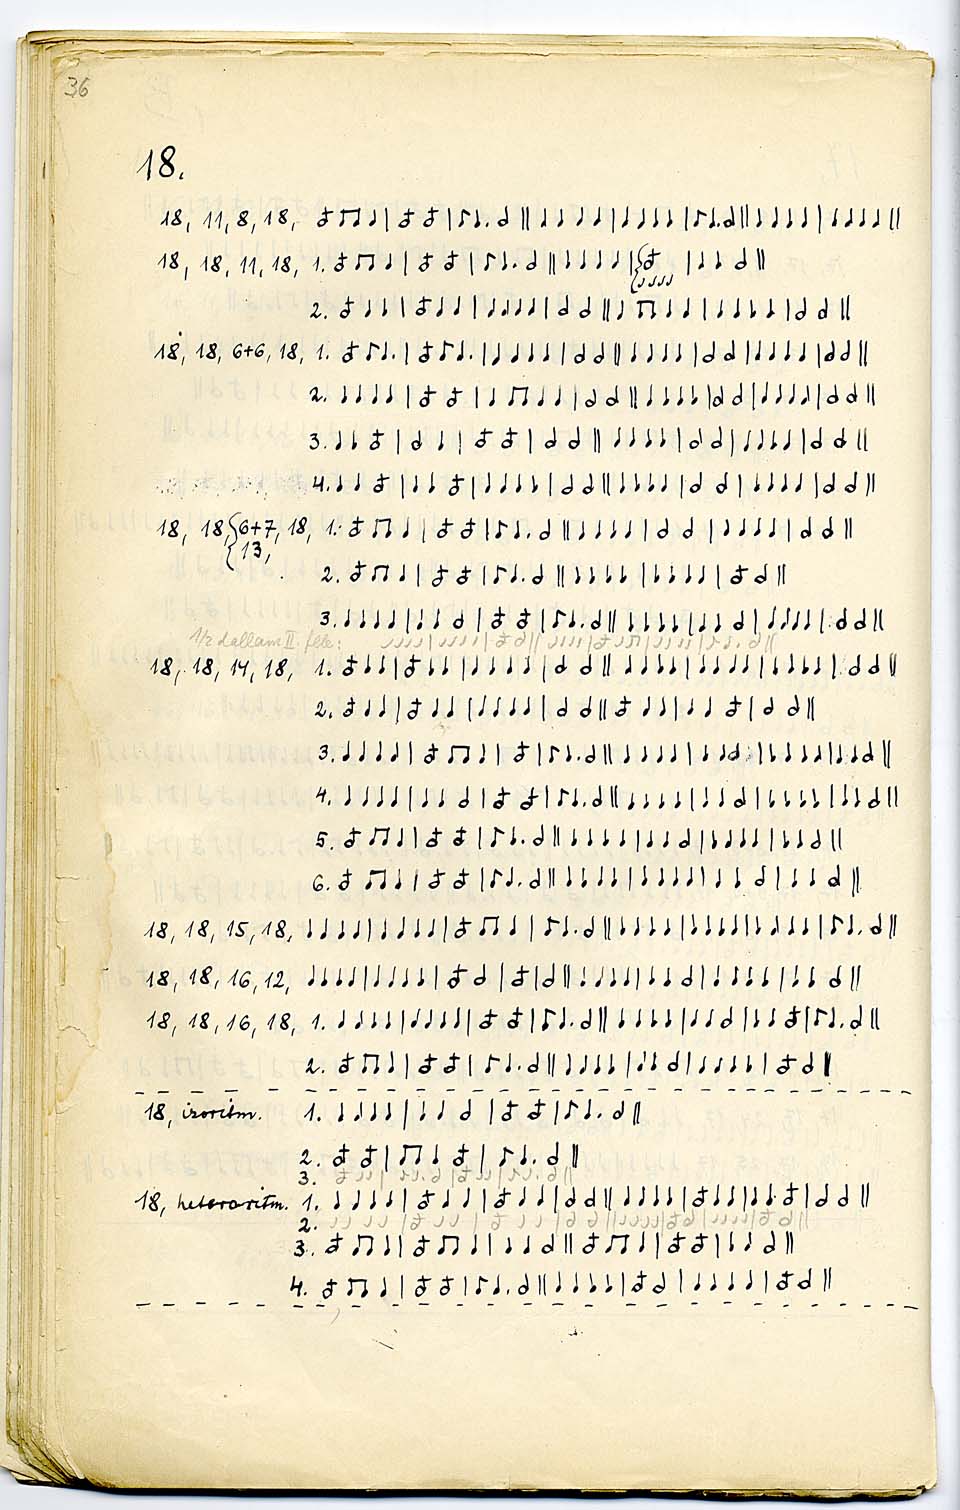 36
18.
18, 11, 8, 18,
18, 18, 11, 18, 1.
2.
18, 18, 6+6, 18, 1.
2.
3.
4.
18, 18, 6+7, 18, 1.
13,
2.
3.
1/2 dallam II. fele:
18, 18, 14, 18, 1.
2.
3.
4.
5.
6.
18, 18, 15, 18,
18, 18, 16, 12,
18, 18, 16, 18, 1.
2.
18, izoritm. 1.
2.
3.
18, heteroritm. 1.
2.
3.
4.